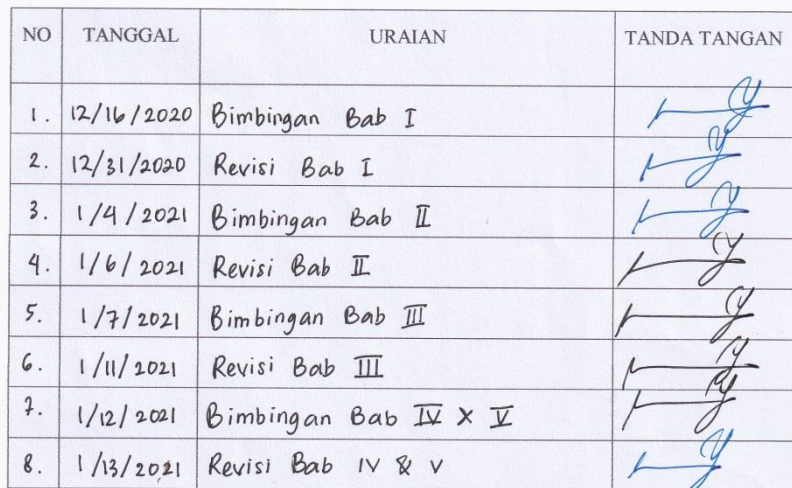 NO TANGGAL URAIAN TANDA TANGAN
1. 12/16/2020 Bimbingan Bab I
2. 12/31/2020 Revisi Bab I
3. 1/4/2021 Bimbingan Bab II
4. 1/6/2021 Revisi Bab II
5. 1/7/2021 Bimbingan Bab III
6. 1/11/2021 Revisi Bab III
7. 1/12/2021 Bimbingan Bab IV X V
8. 1/13/2021 Revisi Bab IV & V